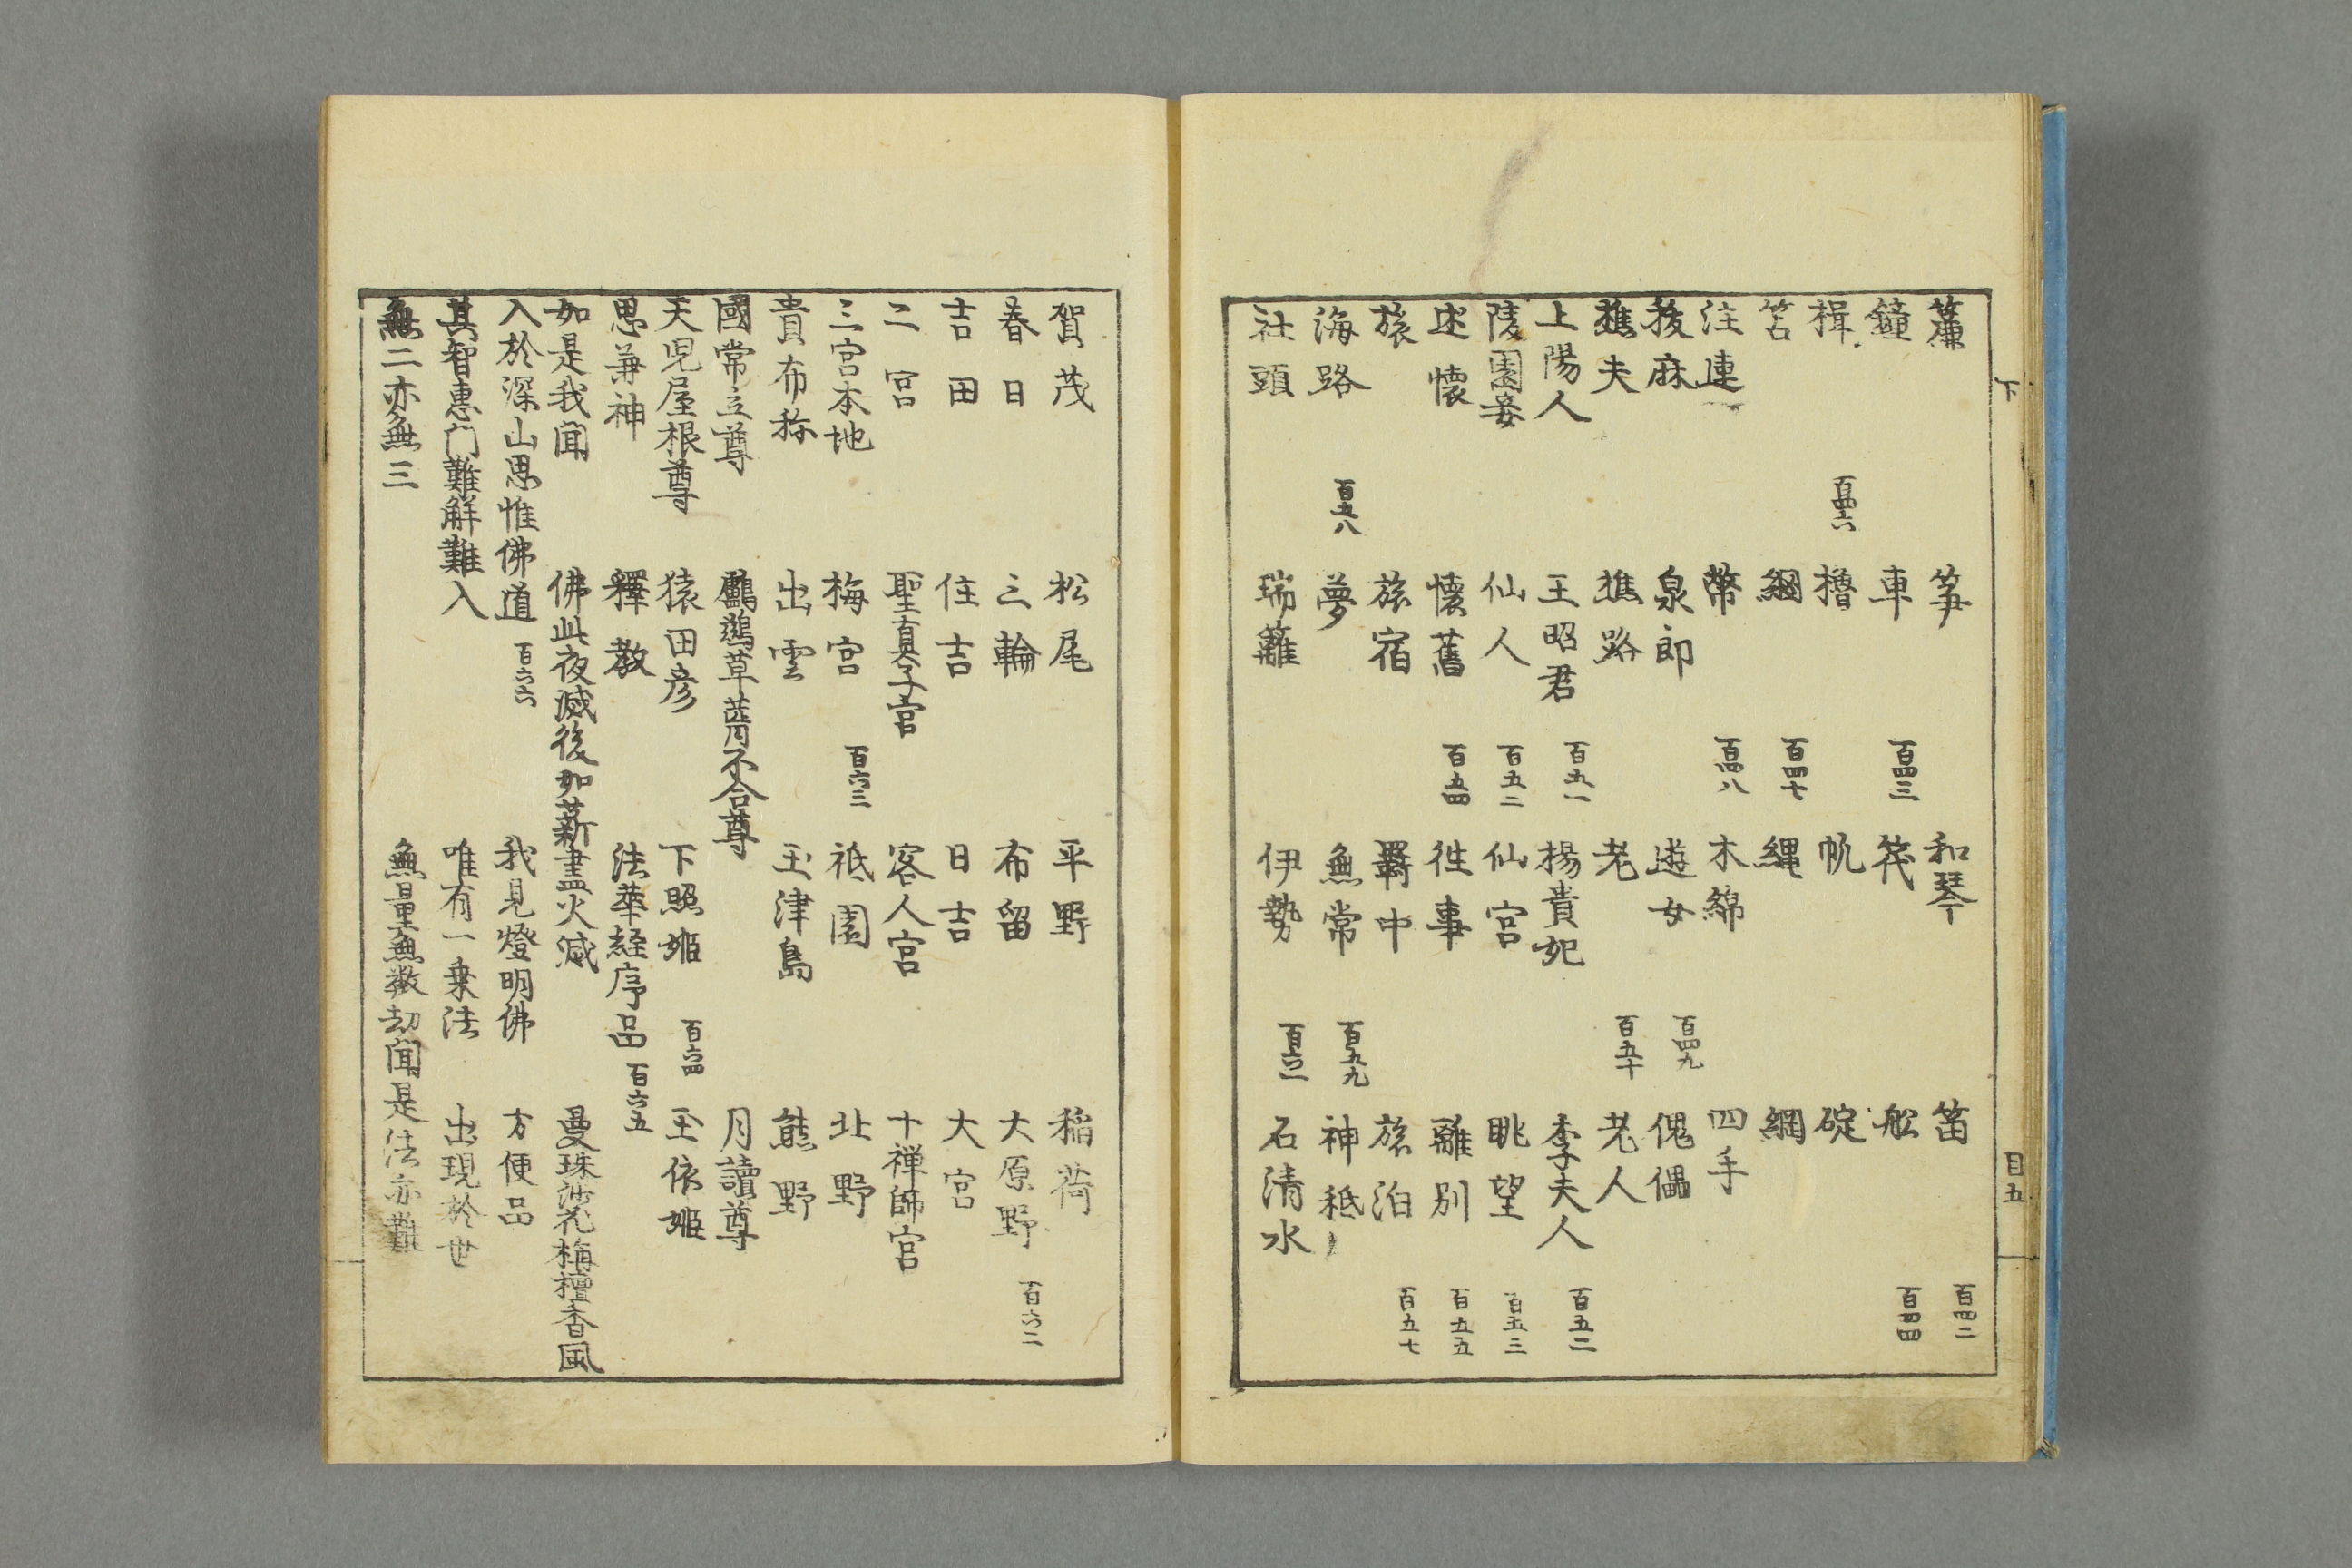 簫 筝 和琴 笛 百四二
鐘 車 百四三 筏 舩 百四四
楫 百四六 櫓 帆 碇
筥 網 百四七 縄 綱
注連 幣 百四八 木綿 四手
祓麻 泉郎 遊女 百四九 傀儡
樵夫 樵路 老 百五十 老人
上陽人 王昭君 百五一 楊貴妃 李夫人 百五二
陵園妾 仙人 百五二 仙宮 眺望 百五三
述懷 懷舊 百五四 徃事 離別 百五五
旅 旅宿 羇中 旅泊 百五七
海路 百五八 夢 無常 百五九 神祇
社頭 瑞籬 伊勢 百六一 石清水
下
目五
賀茂 松尾 平野 稲荷
春日 三輪 布留 大原野 百六二
吉田 住吉 日吉 大宮
二宮 聖真子宮 客人宮 十禅師宮
三宮本地 梅宮 百六三 祇園 北野
貴布祢 出雲 玉津島 熊野
國常立尊 鸕鷀草葺不合尊 月讀尊
天児屋根尊 猿田彦 下照姫 百六四 玉依姫
思兼神 釋教 法華経序品 百六五
如是我聞 佛此夜滅後如薪盡火滅 曼珠沙花栴檀香風
入於深山思惟佛道 百六六 我見燈明佛 方便品
其智惠门難解難入 唯有一乗法 出現於世
無二亦無三 無量無数劫聞是法亦難